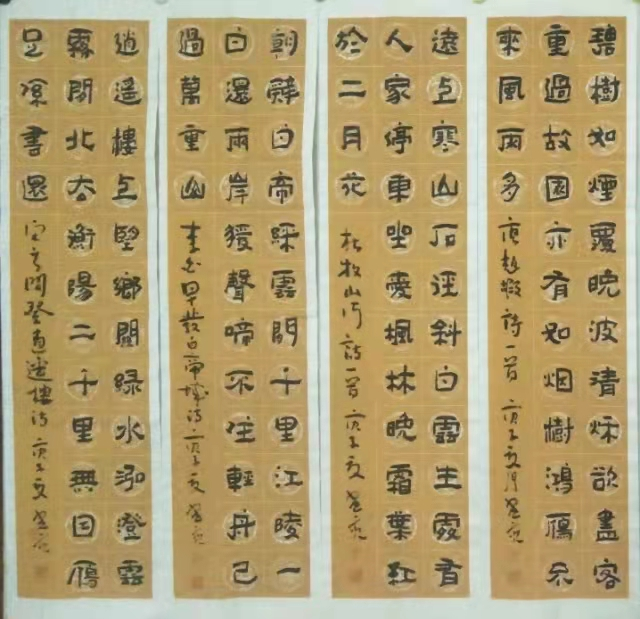 碧樹如煙覆晚波清秌欲盡客
重過故園亦有如烟樹鴻鴈不
來風雨多 唐趙嘏詩一首 庚子夏月
遠上寒山石逕斜白雲生處有
人家停車坐愛楓林晚霜葉紅
於二月花 杜牧山行詩一首 庚子夏
朝辤白帝綵雲間千里江陵一
日還兩岸猨聲啼不住輕舟已
過萬重山 李白早發白帝城詩 庚子夏
逍遙樓上望鄉關綠水泓澄雲
霧間北去衡陽二千里無因鴈
足係書還 宋之問登逍遙樓詩 庚子夏